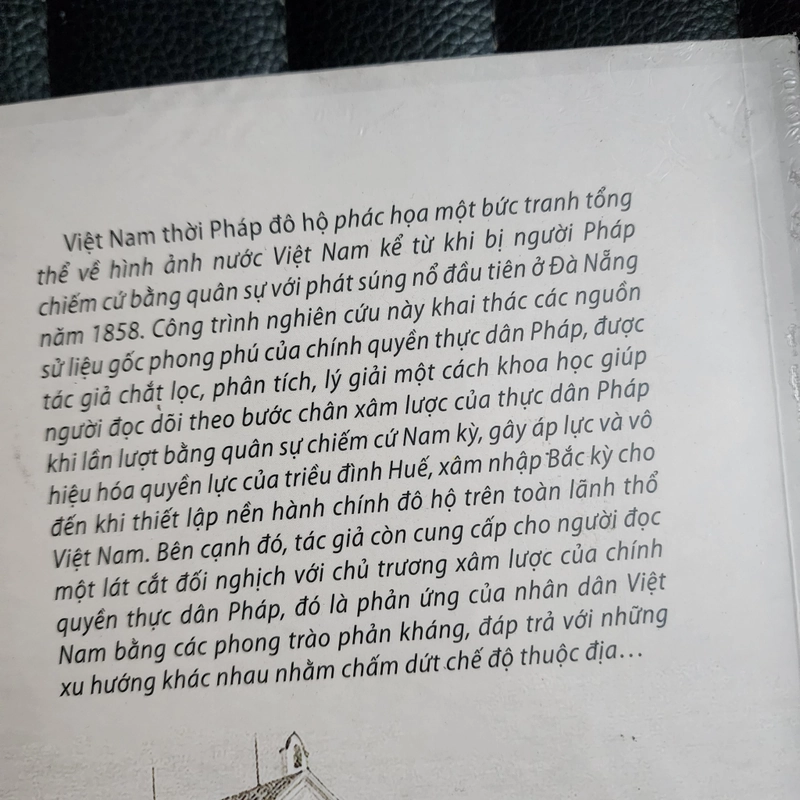 Việt Nam thời Pháp đô hộ phác họa một bức tranh tổng
thể về hình ảnh nước Việt Nam kể từ khi bị người Pháp
chiếm cứ bằng quân sự với phát súng nổ đầu tiên ở Đà Nẵng
năm 1858. Công trình nghiên cứu này khai thác các nguồn
sử liệu gốc phong phú của chính quyền thực dân Pháp, được
tác giả chắt lọc, phân tích, lý giải một cách khoa học giúp
người đọc dõi theo bước chân xâm lược của thực dân Pháp
khi lần lượt bằng quân sự chiếm cứ Nam kỳ, gây áp lực và vô
hiệu hóa quyền lực của triều đình Huế, xâm nhập Bắc kỳ cho
đến khi thiết lập nền hành chính đô hộ trên toàn lãnh thổ
Việt Nam. Bên cạnh đó, tác giả còn cung cấp cho người đọc
một lát cắt đối nghịch với chủ trương xâm lược của chính
quyền thực dân Pháp, đó là phản ứng của nhân dân Việt
Nam bằng các phong trào phản kháng, đáp trả với những
xu hướng khác nhau nhằm chấm dứt chế độ thuộc địa...